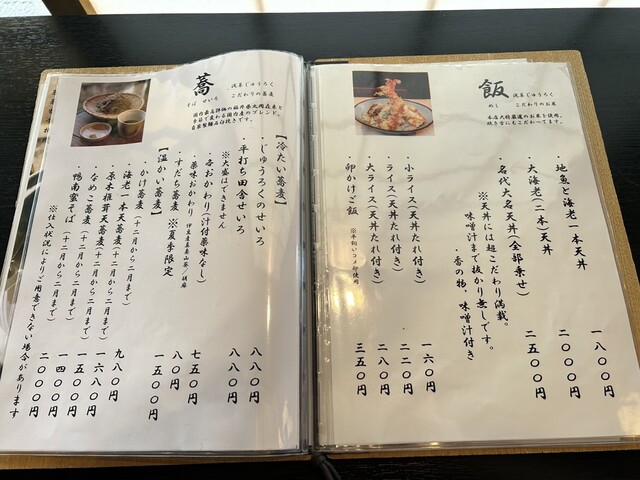 飯
めし
浅草じゅうろく
こだわりのお米
・地魚と海老一本天丼 一八〇〇円
・大海老(二本)天丼 二〇〇〇円
・名代大名天丼(全部乗せ) 二五〇〇円
※天丼には超こだわり満載。
味噌汁まで抜かり無しです。
・香の物・味噌汁付き
・小ライス(天丼たれ付き) 一六〇円
・ライス(天丼たれ付き) 二二〇円
・大ライス(天丼たれ付き) 二八〇円
・卵かけご飯 ※平飼いコメ卵使用 三五〇円
蕎
そば せいろ
浅草じゅうろく
こだわりの蕎麦
【冷たい蕎麦】
・じゅうろくのせいろ 八八〇円
・平打ち田舎せいろ 八八〇円
※大盛はできません
・各おかわり(汁付薬味なし) 七五〇円
・薬味おかわり 伊豆産真妻山葵/胡麻 八〇円
・すだち蕎麦 ※夏季限定 一五〇〇円
【温かい蕎麦】
・かけ蕎麦(十二月から二月まで) 九八〇円
・海老一本天蕎麦(十二月から二月まで) 一六八〇円
・原木椎茸天蕎麦(十二月から二月まで) 一五〇〇円
・なめこ蕎麦(十二月から二月まで) 一四〇〇円
・鴨南蛮そば(十二月から二月まで) 二〇〇〇円
※仕入状況によりご用意できない場合があります